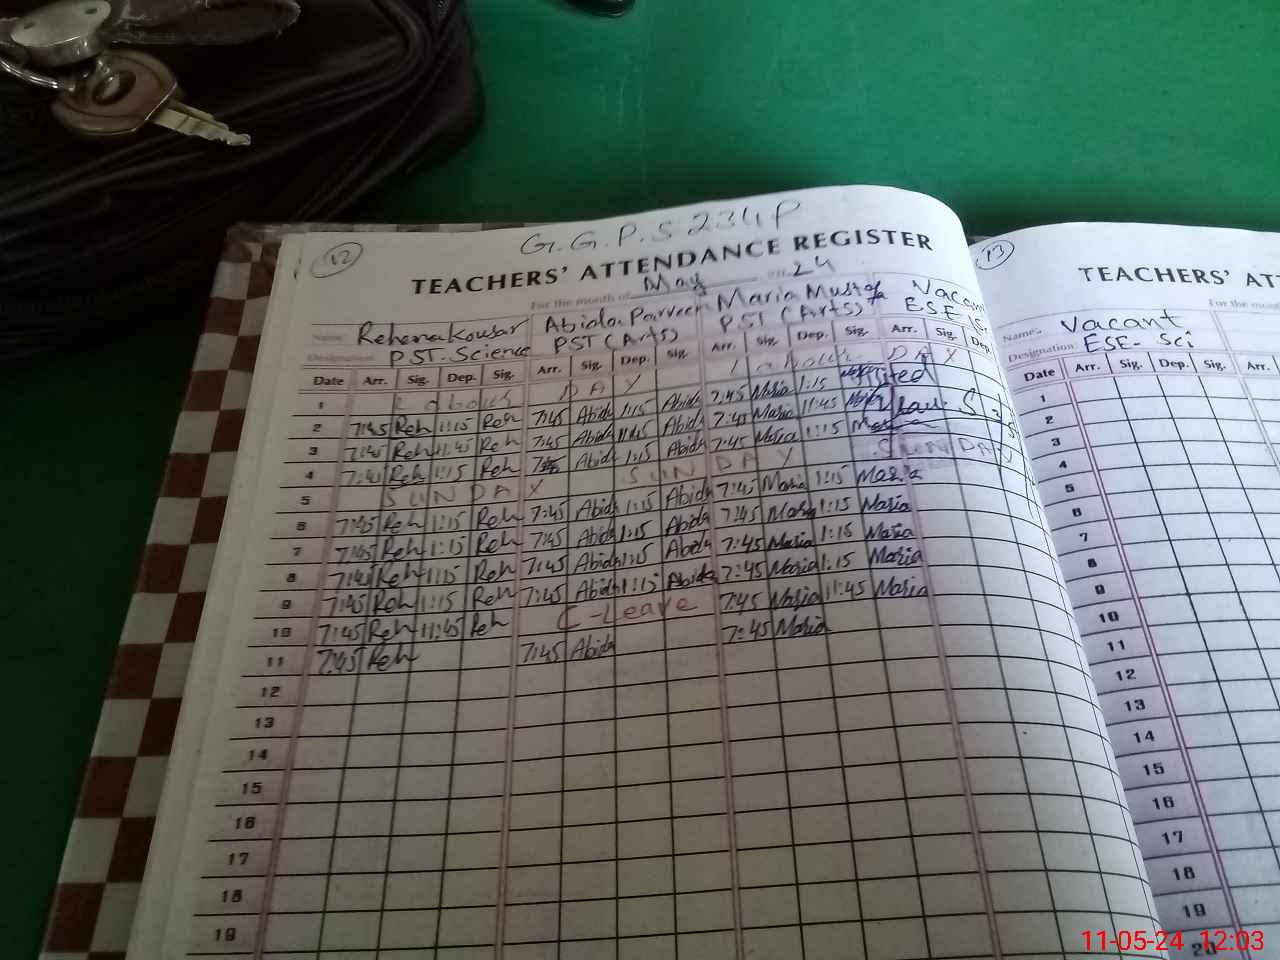 12
G.G.P.S 234P
TEACHERS' ATTENDANCE REGISTER
For the month of May 24
Name:- Rehana Kousar Abida Parveen Maria Mustafa Vacant
Designation: PST-Science PST (Arts) PST (Arts) ESE
Date Arr. Sig. Dep. Sig. Arr. Sig. Dep. Sig. Arr. Sig. Dep. Sig. Arr. Sig. Dep.
1 Labour DAY Labour DAY
2 7:45 Reh 1:15 Reh 7:45 Abida 1:15 Abida 7:45 Maria 1:15
3 7:45 Reh 11:45 Reh 7:45 Abida 11:45 Abida 7:45 Maria 11:45 Maria
4 7:45 Reh 1:15 Reh Abida 1:15 Abida 7:45 Maria 1:15 Maria
5 SUNDAY SUNDAY SUNDAY
6 7:45 Reh 1:15 Reh 7:45 Abida 1:15 Abida 7:45 Maria 1:15 Maria
7 7:45 Reh 1:15 Reh 7:45 Abida 1:15 Abida 7:45 Maria 1:15 Maria
8 7:45 Reh 1:15 Reh 7:45 Abida 1:15 Abida 7:45 Maria 1:15 Maria
9 7:45 Reh 1:15 Reh 7:45 Abida 1:15 Abida 7:45 Maria 11:45 Maria
10 7:45 Reh 11:45 Reh C-Leave 7:45 Maria
11 7:45 Reh 7:45 Abida
12
13
14
15
16
17
18
19
13
TEACHERS' AT
Name:- Vacant
Designation: ESE- Sci
Date Arr. Sig. Dep. Sig. Arr.
1
2
3
4
5
6
7
8
9
10
11
12
13
14
15
16
17
18
19
20
11-05-24 12:03